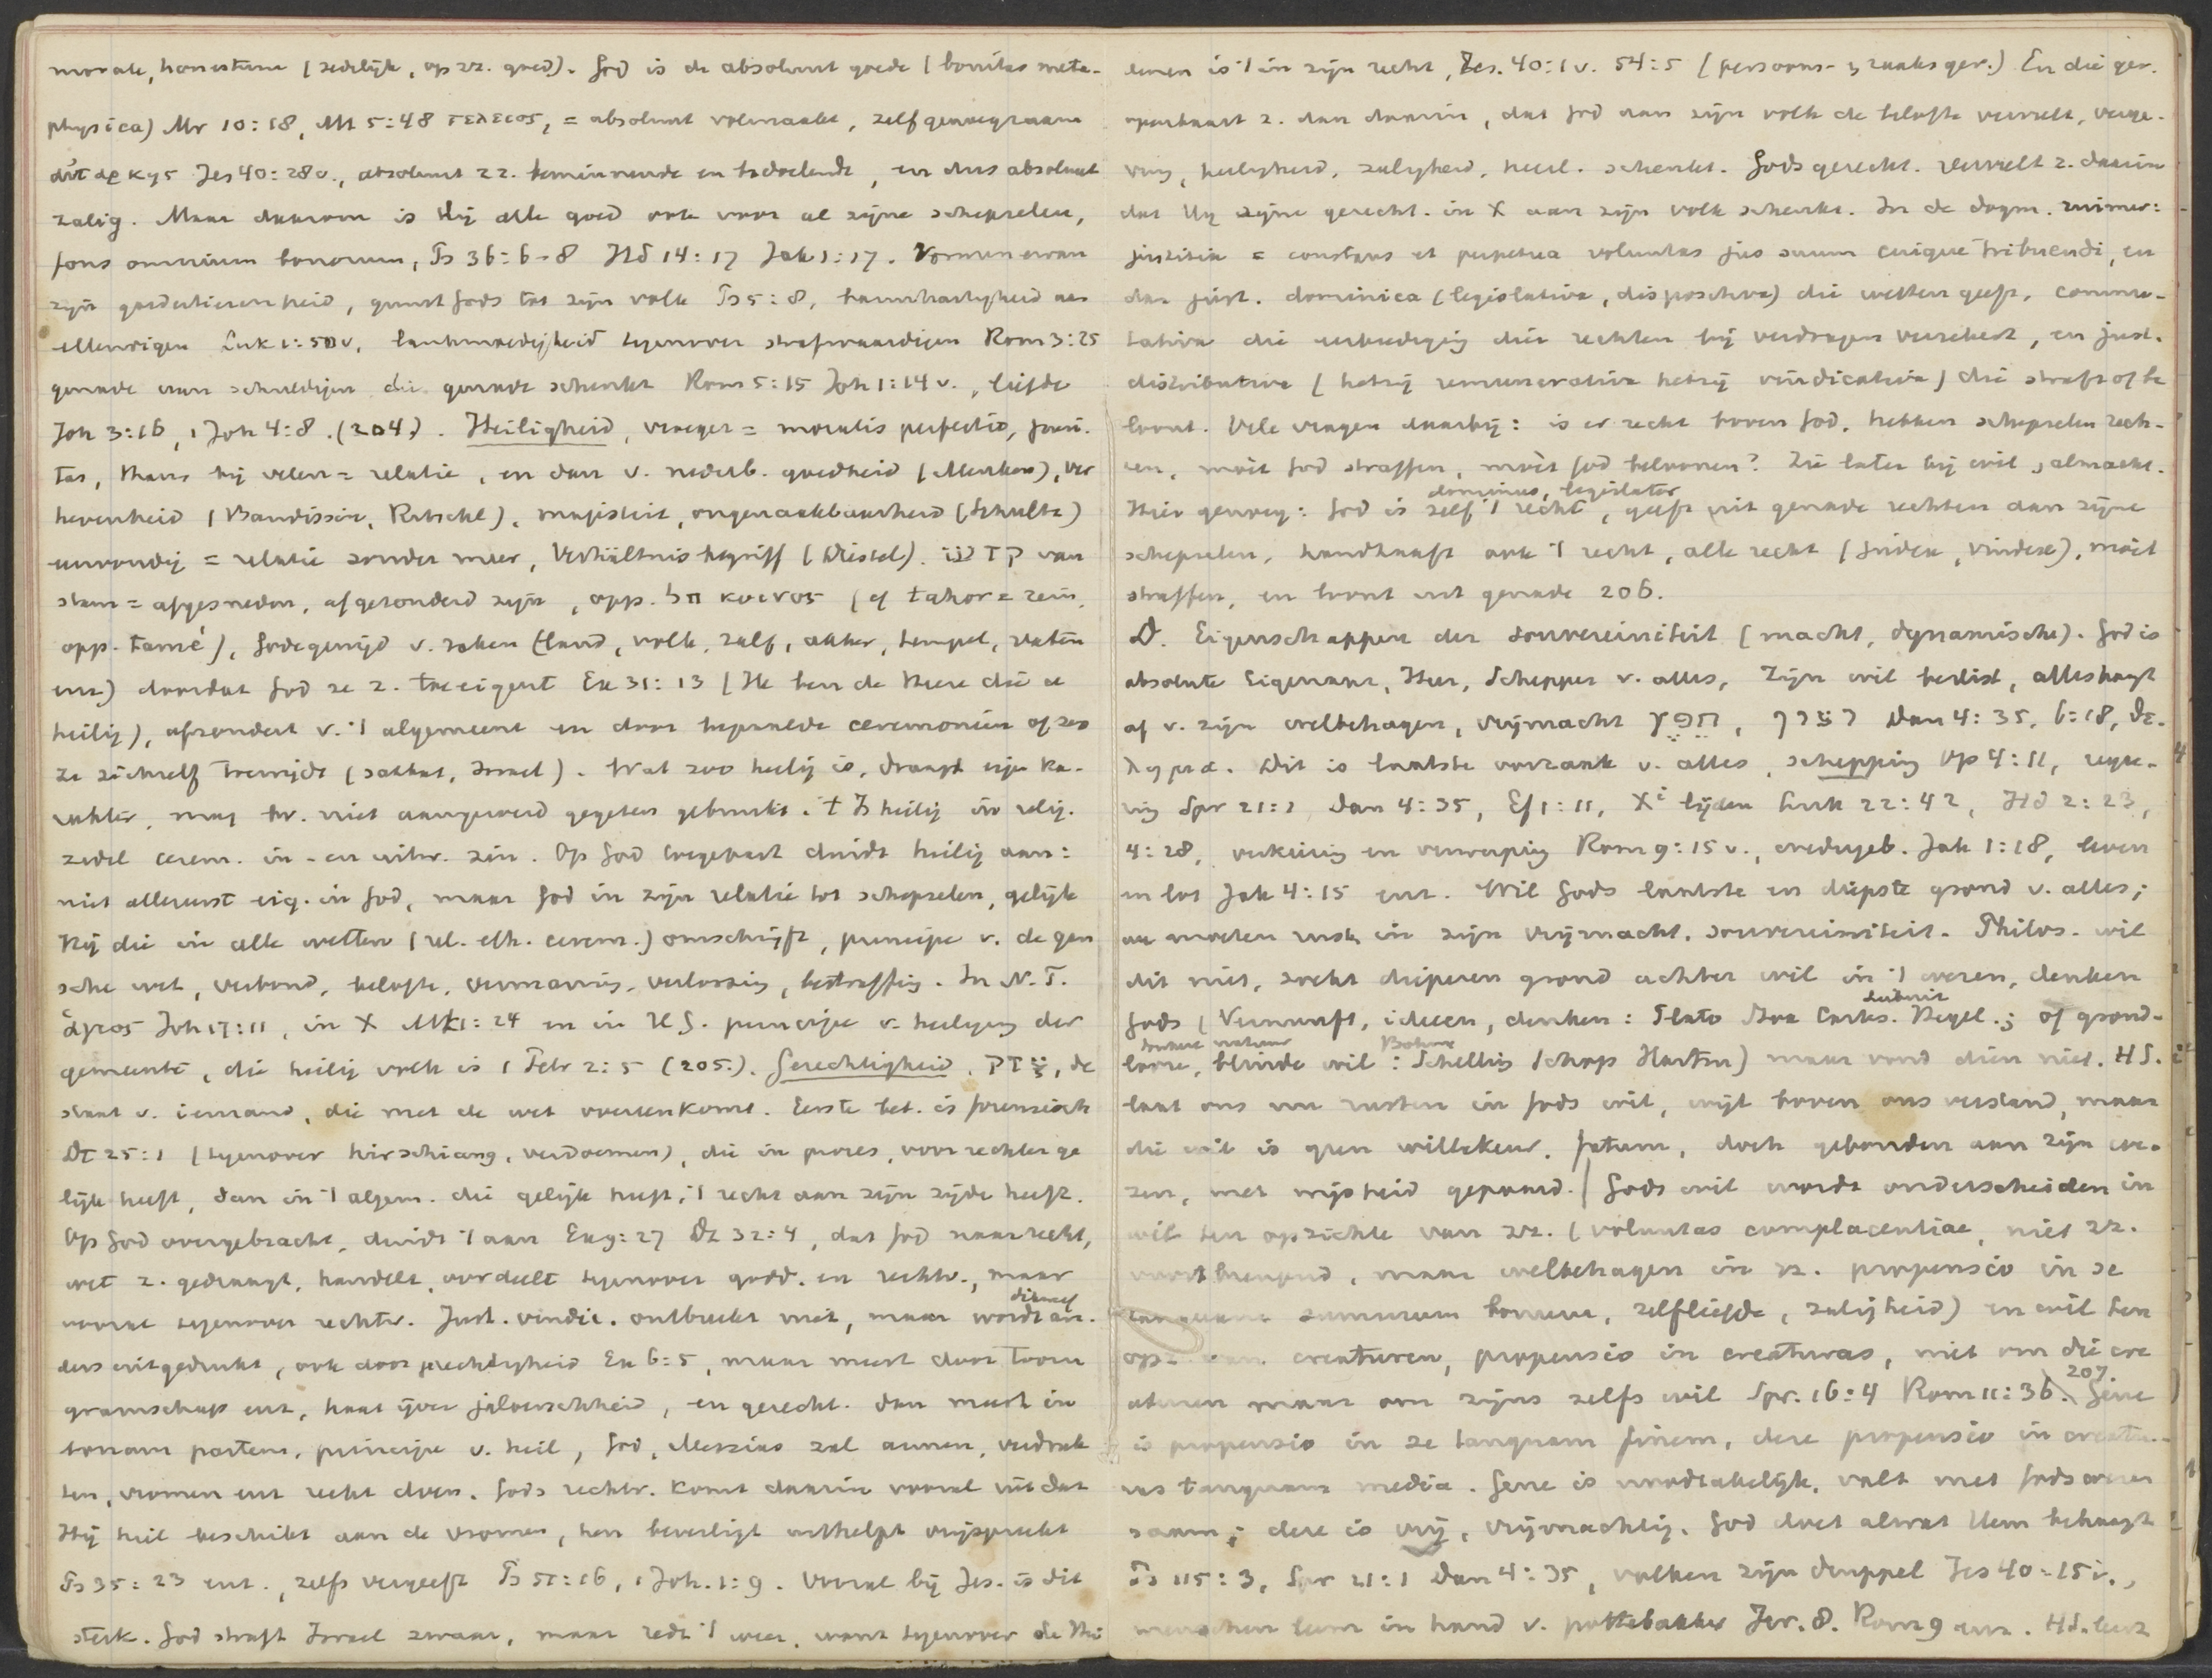 morale, honestum (zedelijk, op zz. goed). God is de absoluut goede (bonitas meta-
physica) Mr 10:18, Mt 5:48 τελειος, = absoluut volmaakte, zelfgenoegzaam
αὐταρκης Jes 40:28v., absoluut zz. beminnende en bedoelende, en dus absoluut
zalig. Maar daarom is Hij alle goed ook voor al zijne schepselen,
fons omnium bonorum, Ps 36:6-8 Hd 14:17 Jak 1:17. Vormen ervan
zijn goedertierenheid, gunst Gods tot zijn volk Ps 5:8, barmhartigheid aan
ellendigen Luk 1:50v, lankmoedigheid tegenover strafwaardigen Rom 3:25
genade aan schuldigen die genade schenkt Rom 5:15 Joh 1:14v., liefde
Joh 3:16, 1 Joh 4:8. (204.). Heiligheid, vroeger = moralis perfectio, puri-
tas, thans bij velen = relatie, en dan v. nederb. goedheid (Menken), ver
hevenheid (Baudissin, Ritschl), majesteit, ongenaakbaarheid (Schultz)
eenvoudig = relatie zonder meer, Verhältnisbegriff (Diestel). קדש van
stam = afgesneden, afgezonderd zijn, opp. חל κοινος (cf tahor = rein,
opp. tamé), Godegewijd v. zaken (land, volk, zalf, akker, tempel, vaten
enz) doordat God ze z. toeeigent Ex 31:13 (Ik ben de Heere die u
heilig), afzondert v. 't algemeene en door bepaalde ceremoniën op zoo
ze zichzelf toewijdt (sabbat, Israel). Wat zoo heilig is, draagt eign ka-
rakter, mag bv. niet aangeroerd gegeten gebruikt. 't Is heilig in relig.
zedel cerem. in- en uitw. zin. Op God toegepast duidt heilig aan:
niet allereerst eig. in God, maar God in zijn relatie tot schepselen, gelijk
Hij die in alle wetten (rel. eth. cerem.) omschrijft, principe v. de gan
sche wet, verbond, belofte, vermaning, verlossing, bestraffing. In N.T.
ἁγιος Joh 17:11, in X Mk 1:24 en in H.G. principe v. heiliging der
gemeente, die heilig volk is 1 Petr 2:5 (205.). Gerechtigheid. צדק, de
staat v. iemand, die met de wet overeenkomt. Eerste bet. is forensisch
Dt 25:1 (tegenover hirschiang, verdoemen), die in proces, voor rechter ge
lijk heeft, dan in 't algem. die gelijk heeft, 't recht aan zijn zijde heeft.
Op God overgebracht, duidt 't aan Ex 9:27 Dt 32:4, dat God naar recht,
wet z. gedraagt, handelt, oordeelt tegenover godd. en rechtv., maar
vooral tegenover rechtv. Just. vindic. ontbreekt niet, maar wordt dikwerf an-
ders uitgedrukt, ook door gerechtigheid Ex 6:5, maar meest door toorn
gramschap enz, haat ijver jaloerschheid, en gerecht. dan meest in
bonam partem, principe v. heil, God, Messias zal armen, verdruk
ten, vromen enz recht doen. Gods rechtv. komt daarin vooral uit dat
Hij heil beschikt aan de vromen, hen beveiligt uithelpt vrijspreekt
Ps 35:23 enz., zelfs vergeeft Ps 51:16, 1 Joh. 1:9. Vooral bij Jes. is dit
sterk. God straft Israel zwaar, maar redt 't weer, want tegenover de Hei
denen is 't in zijn recht, Jes. 40:1v. 54:5 (persoons- & zaaksger.) En die ger.
openbaart z. dan daarin, dat God aan zijn volk de belofte vervult, verge-
ving, heiligheid, zaligheid, heerl. schenkt. Gods gerecht. vervult z. daarin
dat Hij zijne gerecht. in X aan zijn volk schenkt. In de dogm. ruimer:
justitia = constans et perpetua voluntas jus suum cuique tribuendi, en
dan just. dominica (legislativa, dispositiva) die wetten geeft, commu-
tativa die eerbiediging dier rechten bij verdragen verzekert, en just.
distributiva (hetzij remunerativa hetzij vindicativa) die straft of be
loont. Vele vragen daarbij: is er recht boven God, hebben schepselen rech-
ten, moet God straffen, moet God beloonen? Zie later bij wil, almacht.
Hier genoeg: God is zelf 't recht, dominus, legislator geeft uit genade rechten aan zijne
schepselen, handhaaft ook 't recht, alle recht (judex, vindex), moet
straffen, en loont uit genade 206.
D. Eigenschappen der souvereiniteit (macht, dynamische). God is
absolute Eigenaar, Heer, Schepper v. alles, Zijn wil beslist, alles hangt
af v. zijn welbehagen, vrijmacht חפץ, רצון Dan 4:35, 6:18, θε-
λημα. Dit is laatste oorzaak v. alles, schepping Op 4:11, rege-
ring Spr 21:1 Dan 4:35, Ef 1:11, Xi lijden Luk 22:42, Hd 2:23,
4:28, verkiezing en verwerping Rom 9:15v., wedergeb. Jak 1:18, leven
en lot Jak 4:15 enz. Wil Gods laatste en diepste grond v. alles;
we moeten rusten in zijn vrijmacht, souvereiniteit. Philos. wil
dit niet, zoekt dieperen grond achter wil in 't wezen, denken
Gods (Vernunft, ideeën, denken: Plato Cartes. Leibnitz Hegel.; of grond-
looze, donkere natuur blinde wil: Böhme Schelling Schop Hartm) maar vond dien niet. HS.
laat ons nu rusten in Gods wil, wijl boven ons verstand, maar
die wil is geen willekeur, fatum, doch gebonden aan zijn we-
zen, met wijsheid gepaard. | Gods wil wordt onderscheiden in
wil ten opzichte van zz. (voluntas complacentiae, niet zz.
voortbrengend, maar welbehagen in zz. propensio in se
tanquam summum bonum, zelfliefde, zaligheid) en wil ten
opz. van creaturen, propensio in creaturas, niet om die cre
aturen maar om zijns zelfs wil Spr. 16:4 Rom 11:36. 207. Gene
is propensio in se tanquam finem, deze propensio in creatu-
ras tanquam media. Gene is noodzakelijk, valt met Gods wezen
saam; deze is vrij, vrijmachtig. God doet alwat Hem behaagt
Ps 115:3, Spr 21:1 Dan 4:35, volken zijn druppel Jes 40:15v.,
menschen leem in hand v. pottebakker Jer. 8. Rom 9 enz. HS. leert